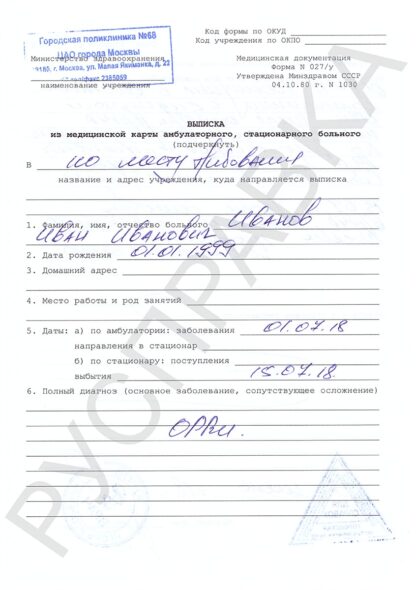 Городская поликлиника №68
ЦАО города Москвы
Министерство здравоохранения
119180, г. Москва, ул. Малая Якиманка, д. 22
тел/факс 2385059
наименование учреждения
Код формы по ОКУД
Код учреждения по ОКПО
Медицинская документация
Форма N 027/у
Утверждена Минздравом СССР
04.10.80 г. N 1030
ВЫПИСКА
из медицинской карты амбулаторного, стационарного больного
(подчеркнуть)
В по месту требования
название и адрес учреждения, куда направляется выписка
1. Фамилия, имя, отчество больного Иванов
Иван Иванович
2. Дата рождения 01.01.1999
3. Домашний адрес
4. Место работы и род занятий
5. Даты: а) по амбулатории: заболевания 01.07.18
направления в стационар
б) по стационару: поступления
выбытия 15.07.18
6. Полный диагноз (основное заболевание, сопутствующее осложнение)
ОРВИ.
РУСПРАВКА